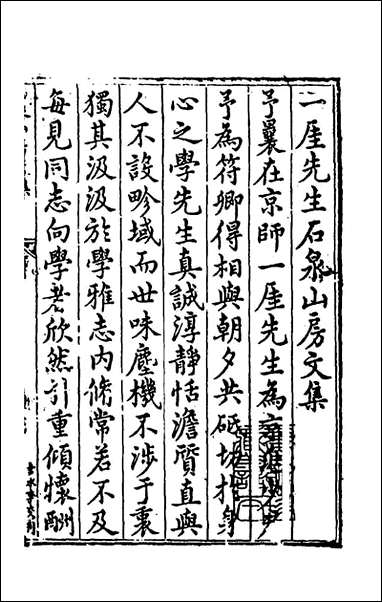 一厓先生石泉山房文集
予曩在京師一厓先生為
予為符卿得相與朝夕共砥切於身
心之學先生真誠淳靜恬澹質直與
人不設畛域而世味塵機不涉于衷
獨其汲汲於學雅志內脩常若不及
每見同志向學者欣然引重傾懷酬